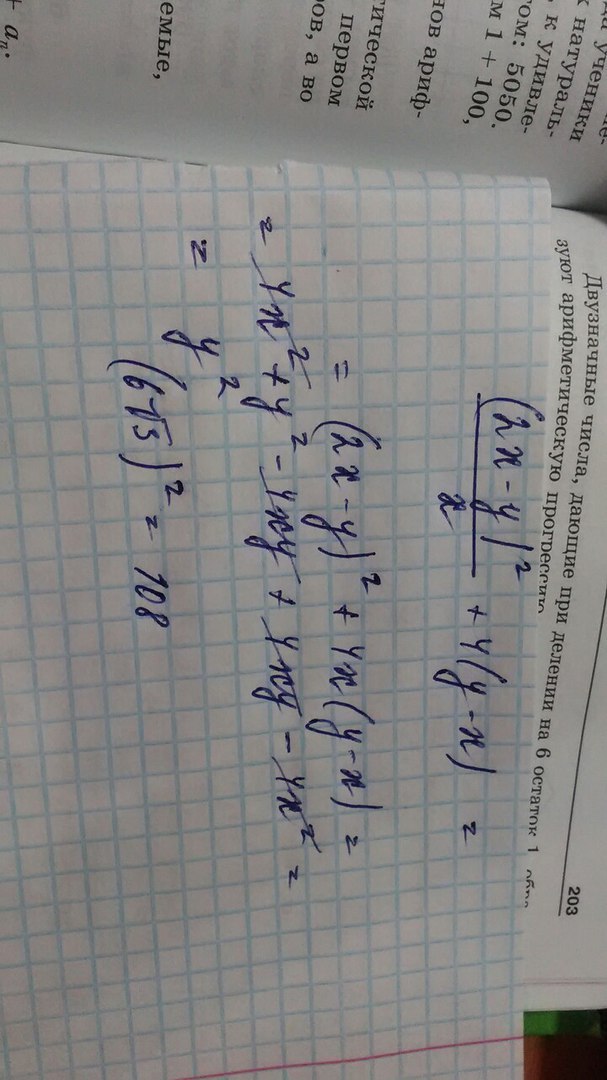 ученики
к натураль-
к удивле-
том: 5050.
м 1 + 100,
нов ариф-
тической
первом
ров, а во
емые,
+ aₙ.
203
Двузначные числа, дающие при делении на 6 остаток 1
зуют арифметическую прогрессию
(2x-y)²/x + 4(y-x) =
= (2x-y)² + 4x(y-x) =
= 4x² + y² - 4xy + 4xy - 4x² =
= y²
(6√3)² = 108